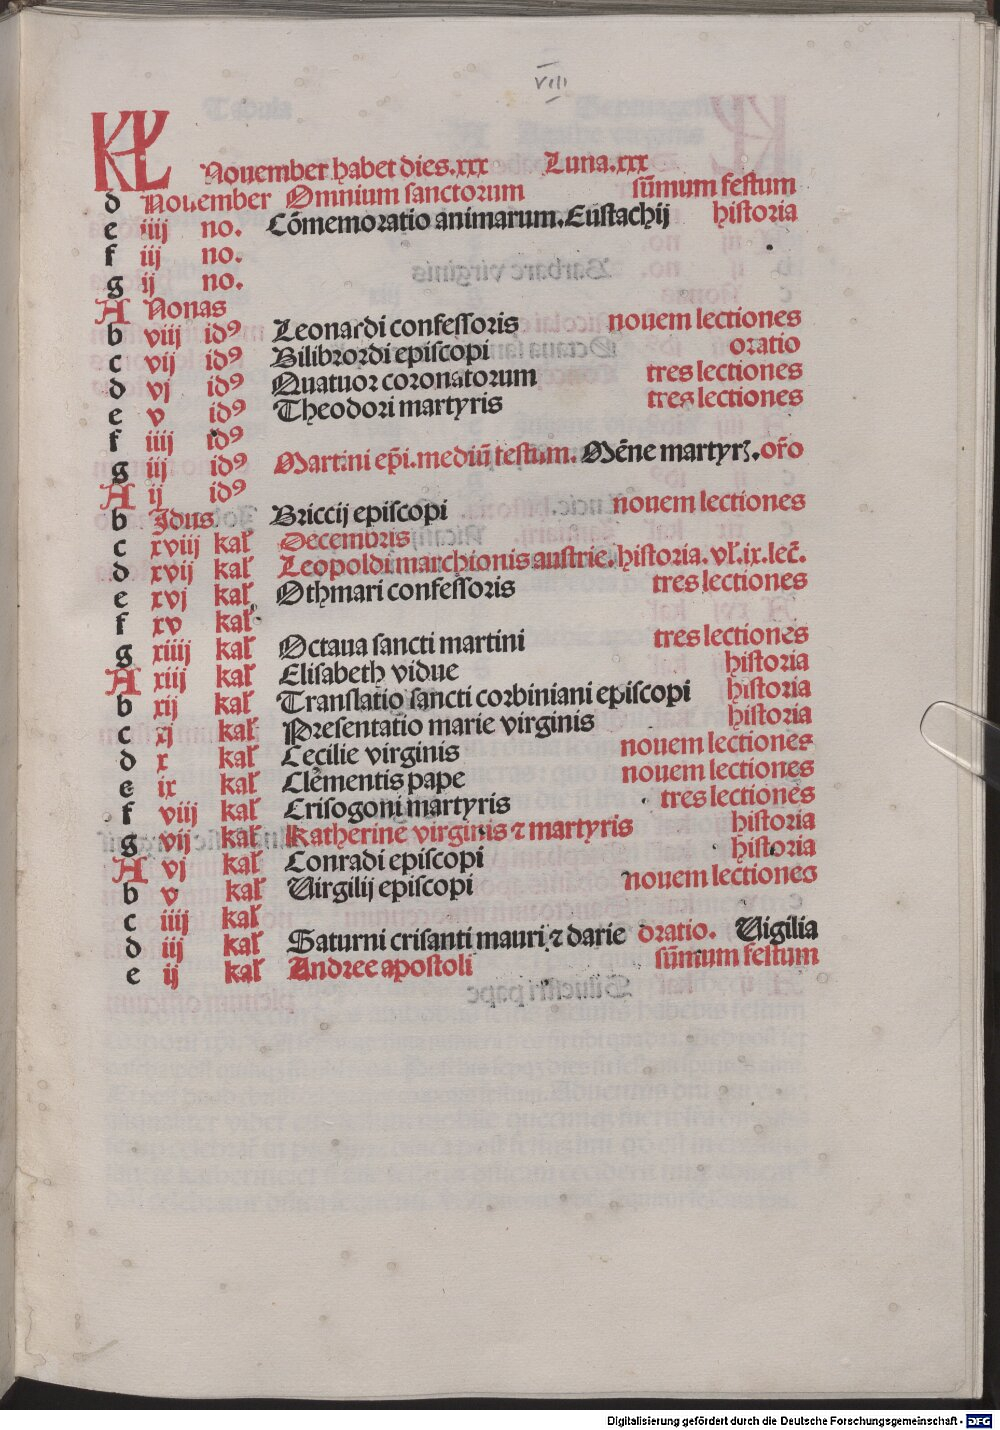 VIII
KL
Nouember habet dies.xxx Luna.xxx
d Nouember Omnium sanctorum sūmum festum
e iiij no. Cōmemoratio animarum.Eustachij historia
f iij no.
g ij no.
A Nonas
b viij idꝰ Leonardi confessoris nouem lectiones
c vij idꝰ Bilibrordi episcopi oratio
d vj idꝰ Quatuor coronatorum tres lectiones
e v idꝰ Theodori martyris tres lectiones
f iiij idꝰ
g iij idꝰ Martini ep̄i.mediū festum. Mēne martyrꝫ.or̄o
A ij idꝰ
b Idus Briccij episcopi nouem lectiones
c xviij kal̄ Decembris
d xvij kal̄ Leopoldi marchionis austrie.historia.vl̄.ix.lec̄.
e xvj kal̄ Othmari confessoris tres lectiones
f xv kal̄
g xiiij kal̄ Octaua sancti martini tres lectiones
A xiij kal̄ Elisabeth vidue historia
b xij kal̄ Translatio sancti corbiniani episcopi historia
c xj kal̄ Presentatio marie virginis historia
d x kal̄ Cecilie virginis nouem lectiones
e ix kal̄ Clementis pape nouem lectiones
f viij kal̄ Crisogoni martyris tres lectiones
g vij kal̄ Katherine virginis ⁊ martyris historia
A vj kal̄ Conradi episcopi historia
b v kal̄ Virgilij episcopi nouem lectiones
c iiij kal̄
d iij kal̄ Saturni crisanti mauri ⁊ darie oratio. Vigilia
e ij kal̄ Andree apostoli sūmum festum
Digitalisierung gefördert durch die Deutsche Forschungsgemeinschaft - DFG